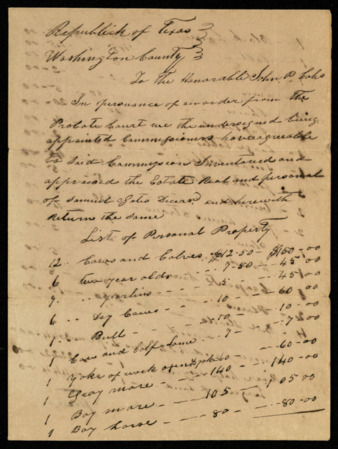 Republick of Texas }
Washington County }
To the Honorable John P. Coles
In persuance of an order from the
Probate Court we the undersigned being
appointed Commissioners have agreeable
to Said Commission Inventoried and
appraised the Estate Real and personal
of Samuel Deceased and herewith
Return the Same
List of Personal Property
12 Cows and Calves $12.50 - $150.00
6 two year olds - 7.50 - 45.00
9 yearlins - 5 - 45.00
6 " Dry Cows - 10 - 60.00
1 Bull - 10 - 10.00
1 Cow and Calf - 7 - 7.00
1 Yoke of work oxen - 60.00
1 Gray mare - 140 - 140.00
1 Bay mare - 105 - 105.00
1 Bay horse - 80 - 80.00